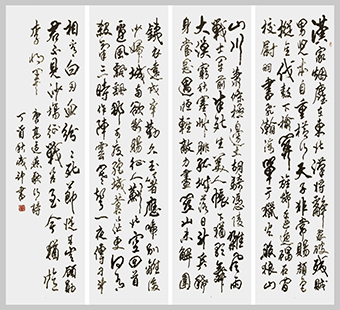 漢家烟塵在東北漢將辭家破殘賊
男兒本自重橫行天子非常賜顏色
摐金伐鼓下榆關旌旆逶迤碣石間
校尉羽書飛瀚海單于獵火照狼山
山川蕭條極邊土胡騎憑陵雜風雨
戰士軍前半死生美人帳下猶歌舞
大漠窮秋塞草腓孤城落日鬥兵稀
身當恩遇恒輕敵力盡關山未解圍
鐵衣遠戍辛勤久玉箸應啼別離後
少婦城南欲斷腸征人薊北空回首
邊風飄飖那可度絕域蒼茫更何有
殺氣三時作陣雲寒聲一夜傳刁斗
相看白刃血紛紛死節從來豈顧勳
君不見沙場征戰苦至今猶憶
李將軍 唐高適燕歌行詩
丁酉秋 書